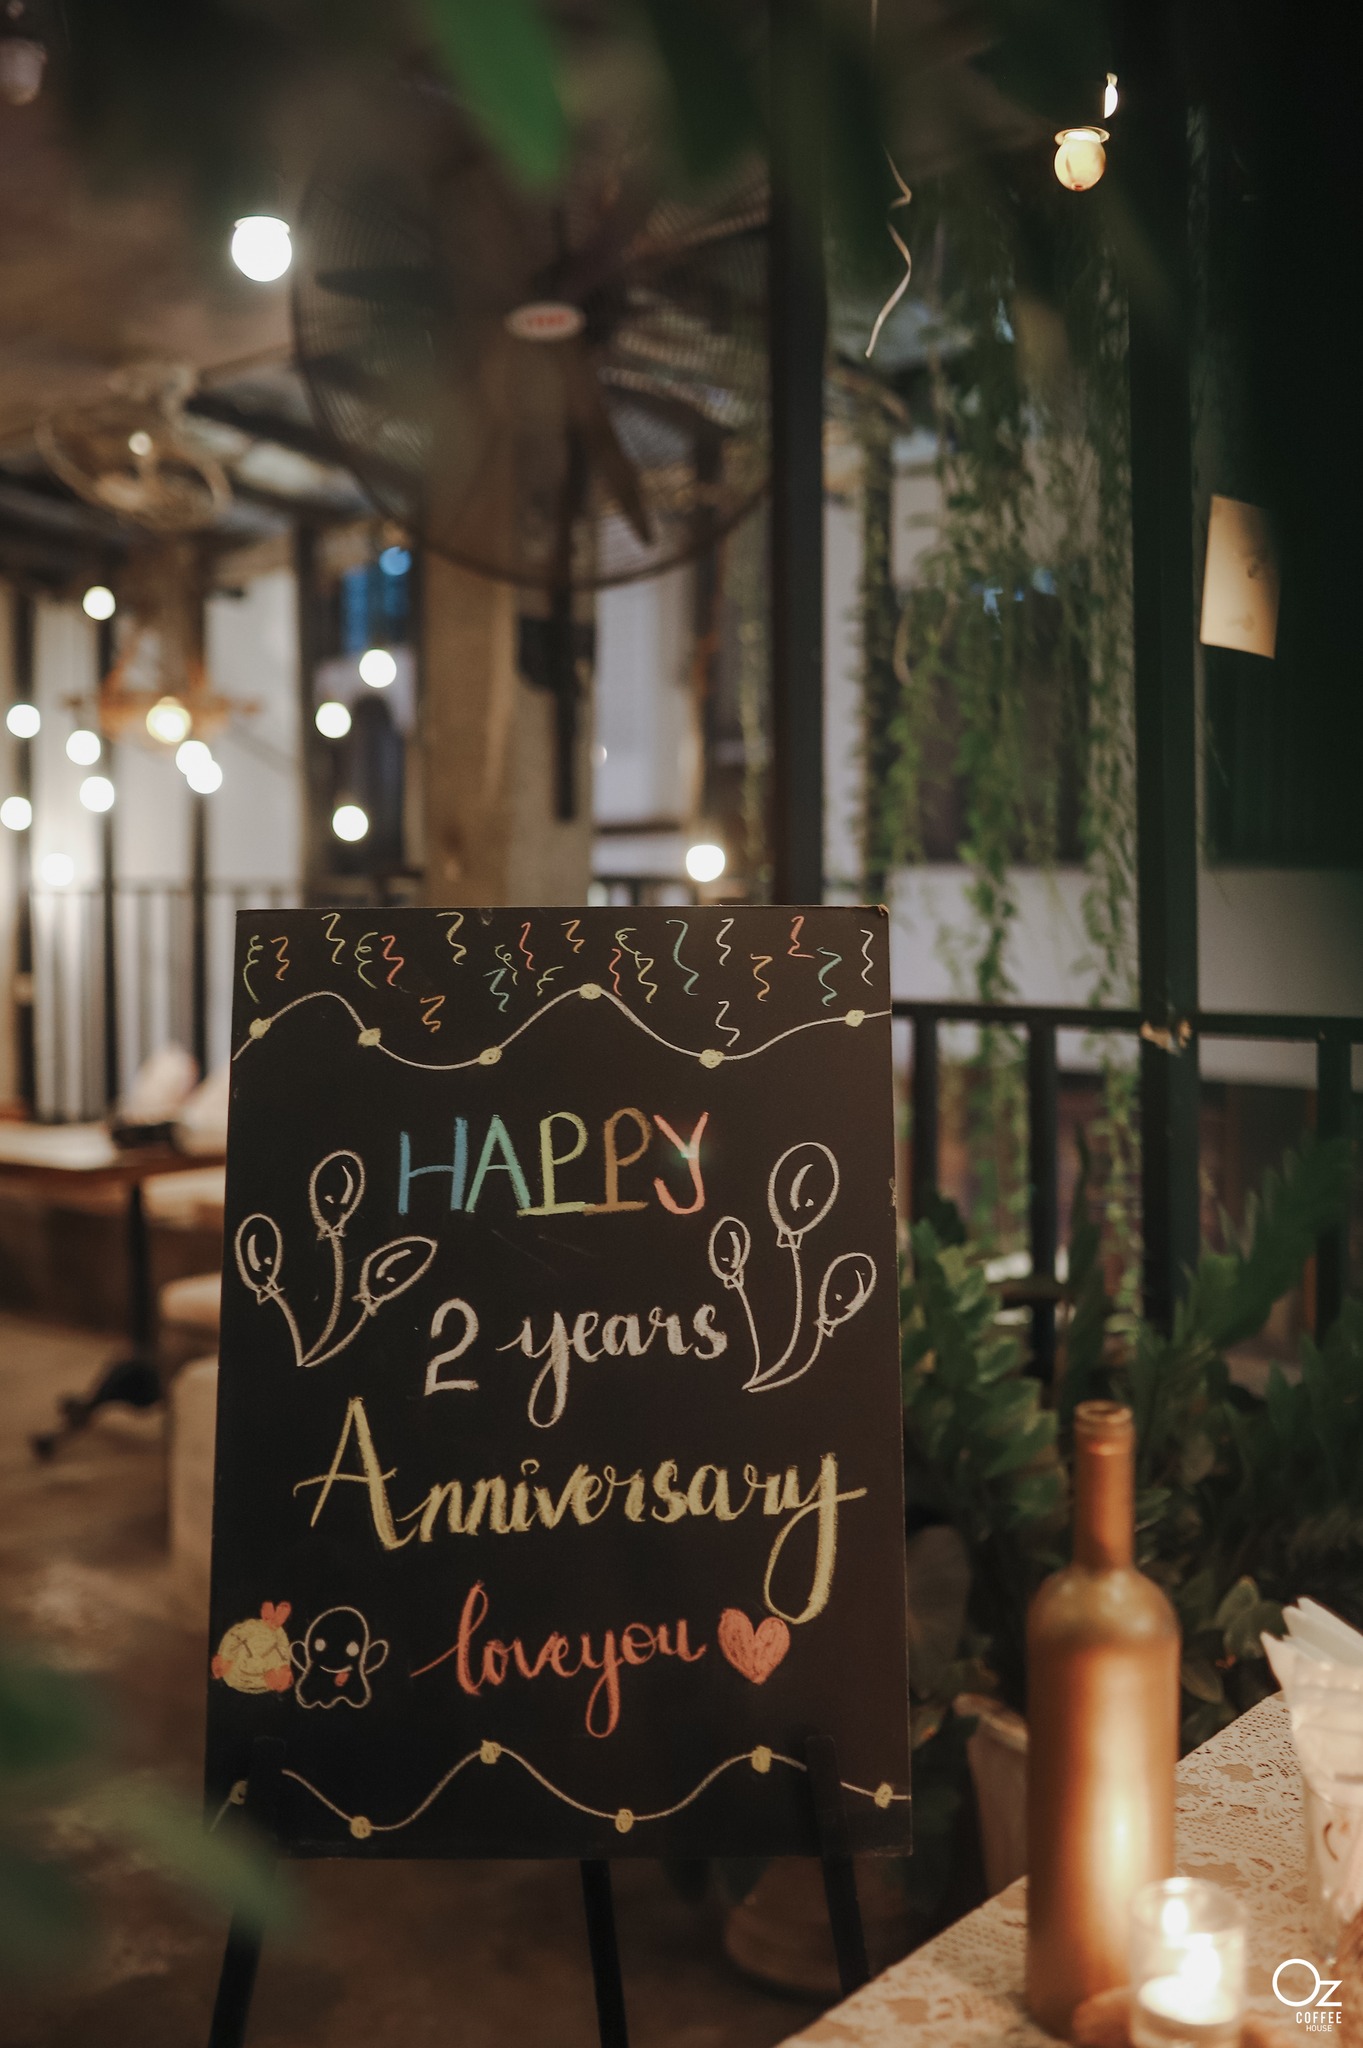 HAPPY
2 years
Anniversary
love you
Oz
COFFEE
HOUSE